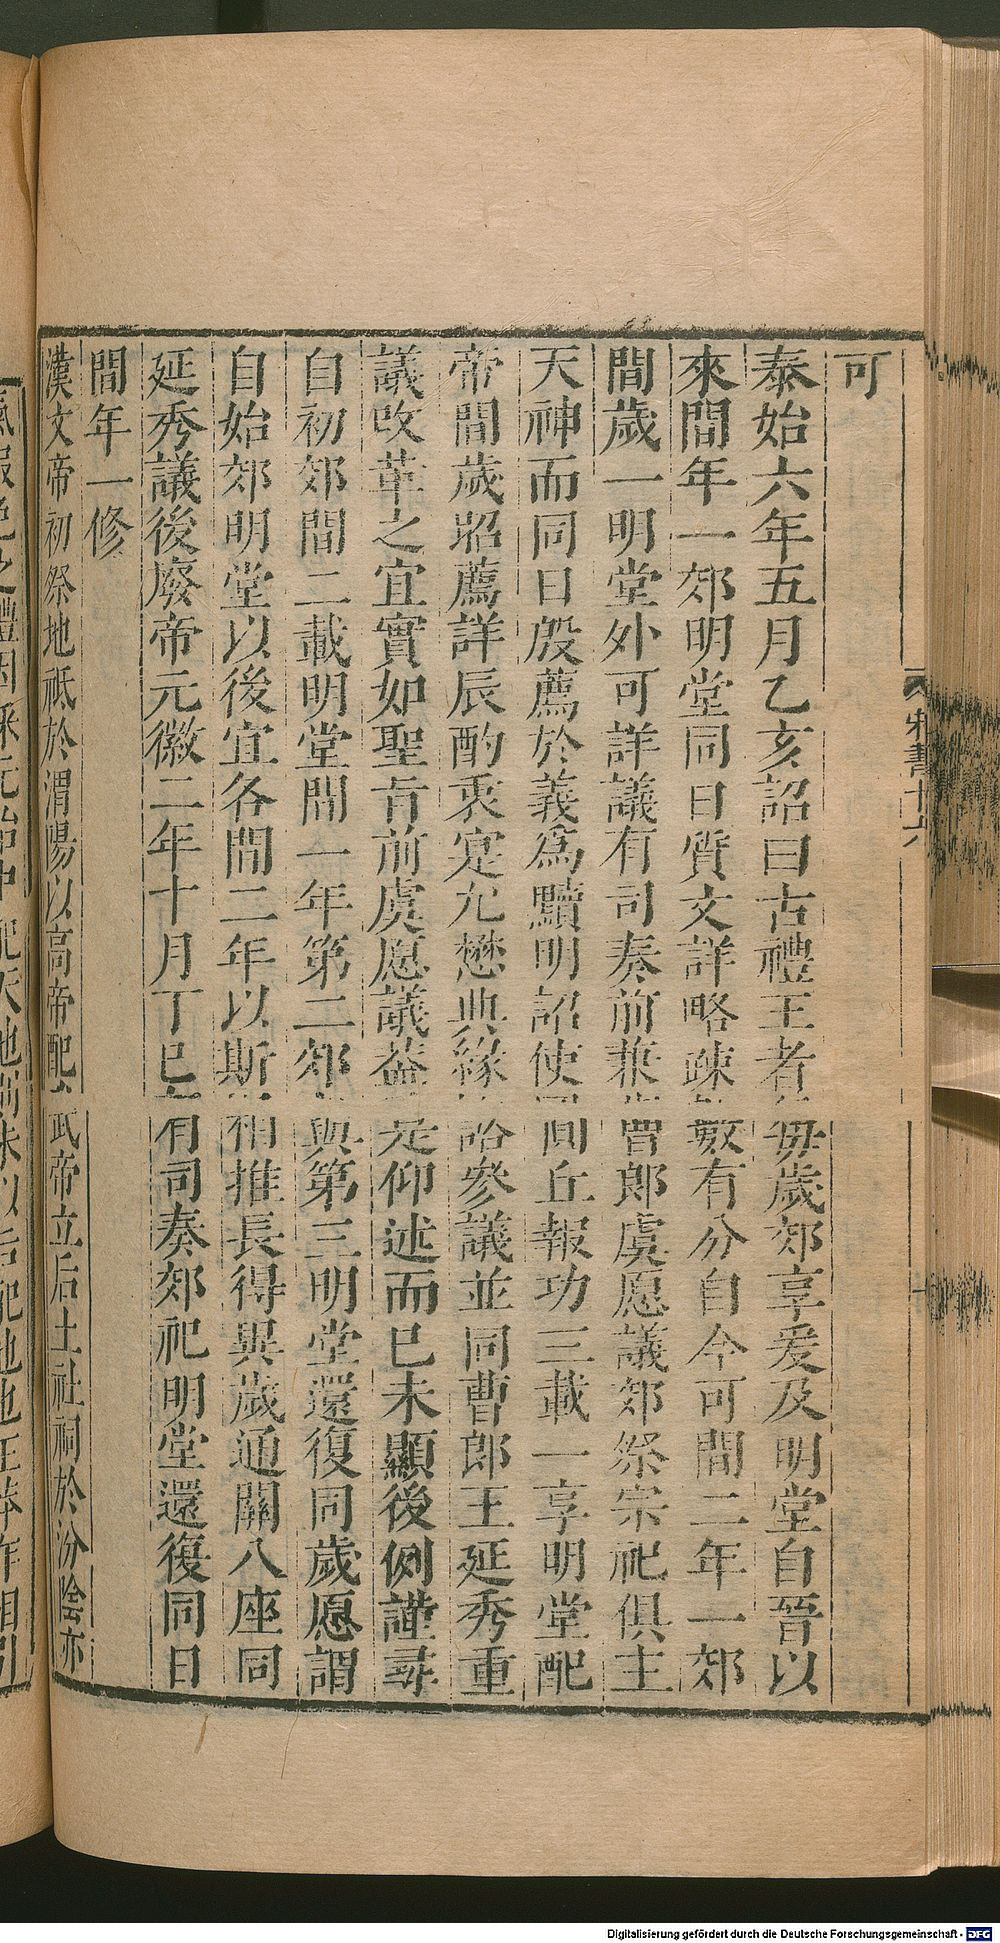 可
泰始六年五月乙亥詔曰古禮王者毎歲郊享爰及明堂自晉以
來間年一郊明堂同日質文詳略疎數有分自今可間二年一郊
間歲一明堂外可詳議有司奏前兼曹郎虞愿議郊祭宗祀俱主
天神而同日殷薦於義爲黷明詔使圓丘報功三載一享明堂配
帝間歲昭薦詳辰酌衷寔允懋典緣諮參議並同曹郎王延秀重
議改革之宜實如聖旨前虞愿議蓋是仰述而已未顯後例謹尋
自初郊間二載明堂間一年第二郊與第三明堂還復同歲愿謂
自始郊明堂以後宜各間二年以斯相推長得異歲通關八座同
延秀議後廢帝元徽二年十月丁巳有司奏郊祀明堂還復同日
間年一修
漢文帝初祭地祇於渭陽以高帝配武帝立后土社祠於汾陰亦
宋書十六
Digitalisierung gefördert durch die Deutsche Forschungsgemeinschaft - DFG